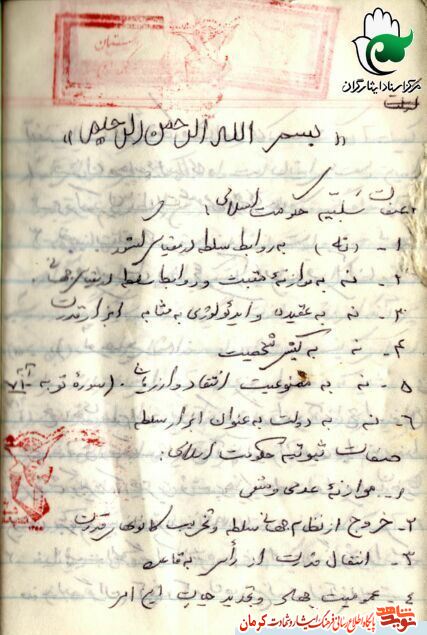 مرکز اسناد ایثارگران
«بسم الله الرحمن الرحیم»
صفات سلبیه حکومت اسلامی:
۱- (نه) به روابط سلطه در مقیاس کشور
۲- نه به موازنهٔ مثبت و روابط سلطه در مقیاس جهانی
۳- نه به عقیده و ایدئولوژی به مثابه ابزار قدرت
۴- نه به کیش شخصیت
۵- نه به ممنوعیت انتقاد و ارزیابی. (سورهٔ توبه آیه ۷۱)
۶- نه به دولت به عنوان ابزار سلطه
صفات ثبوتیه حکومت اسلامی:
۱- موازنهٔ عدمی و منفی
۲- خروج از نظام جهانی سلطه و تخریب کانونهای قدرت
۳- انتقال قدرت از رأس به قاعده
۴- عمومیت
نوید شاهد
پایگاه اطلاع رسانی فرهنگ ایثار و شهادت کرمان